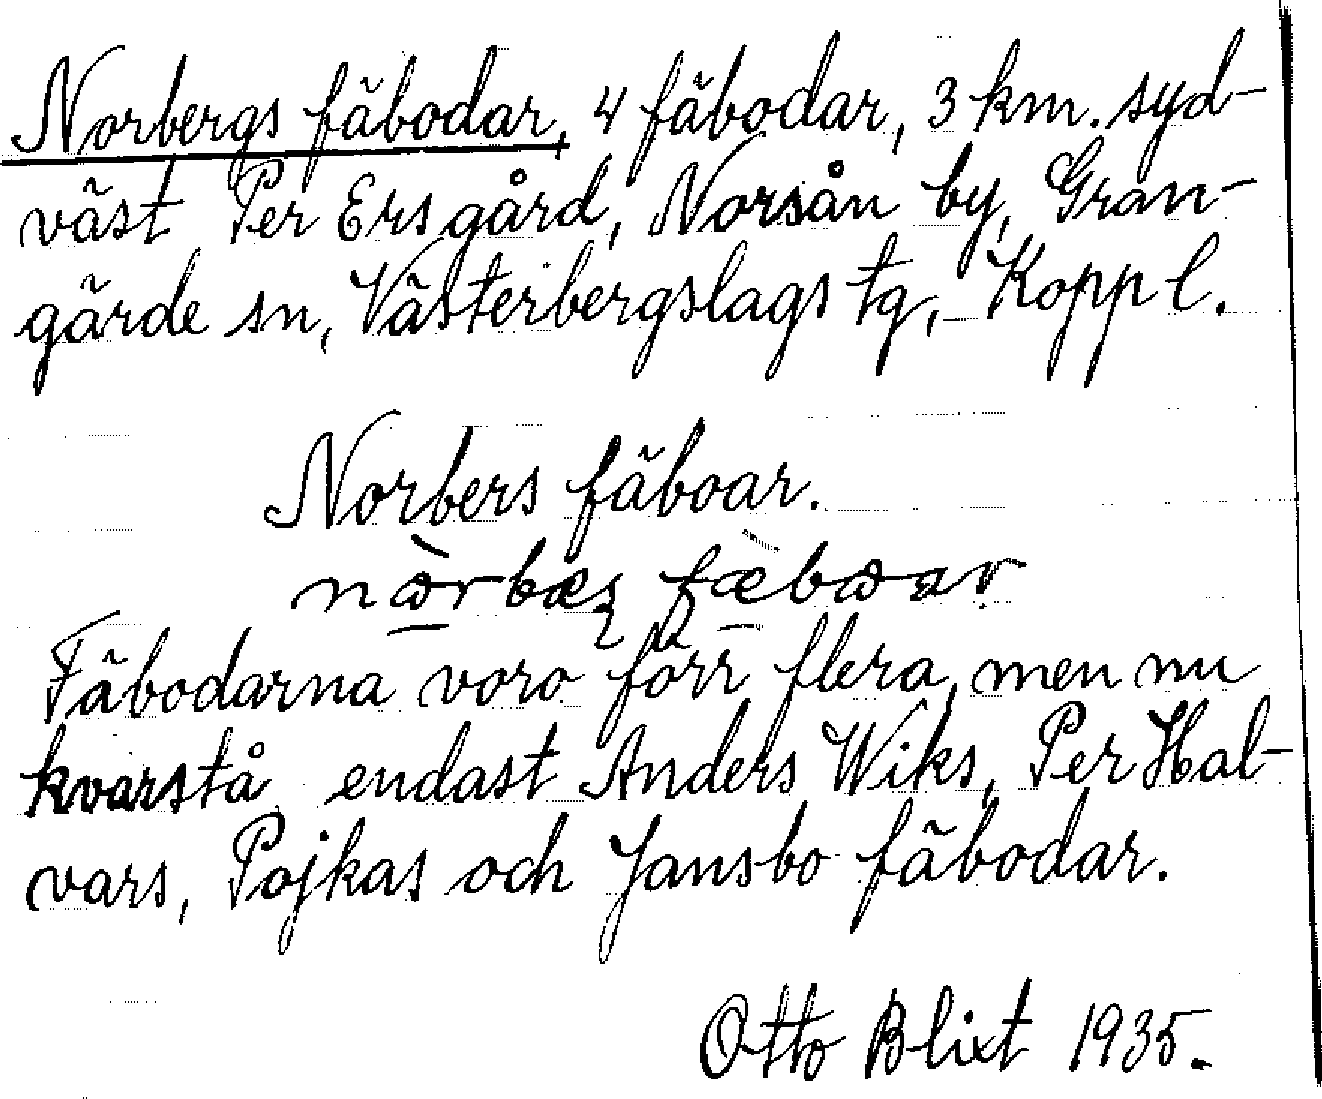 Norbergs fäbodar, 4 fäbodar, 3 km. syd-
väst Per Ers gård, Norsån by, Gran-
gärde sn, Västerbergslags tg, Kopp l.
Norbers fäboar.
Fäbodarna voro förr flera, men nu
kvarstå endast Anders Wiks, Per Hal-
vars, Pojkas och Jansbo fäbodar.
Otto Blixt 1935.